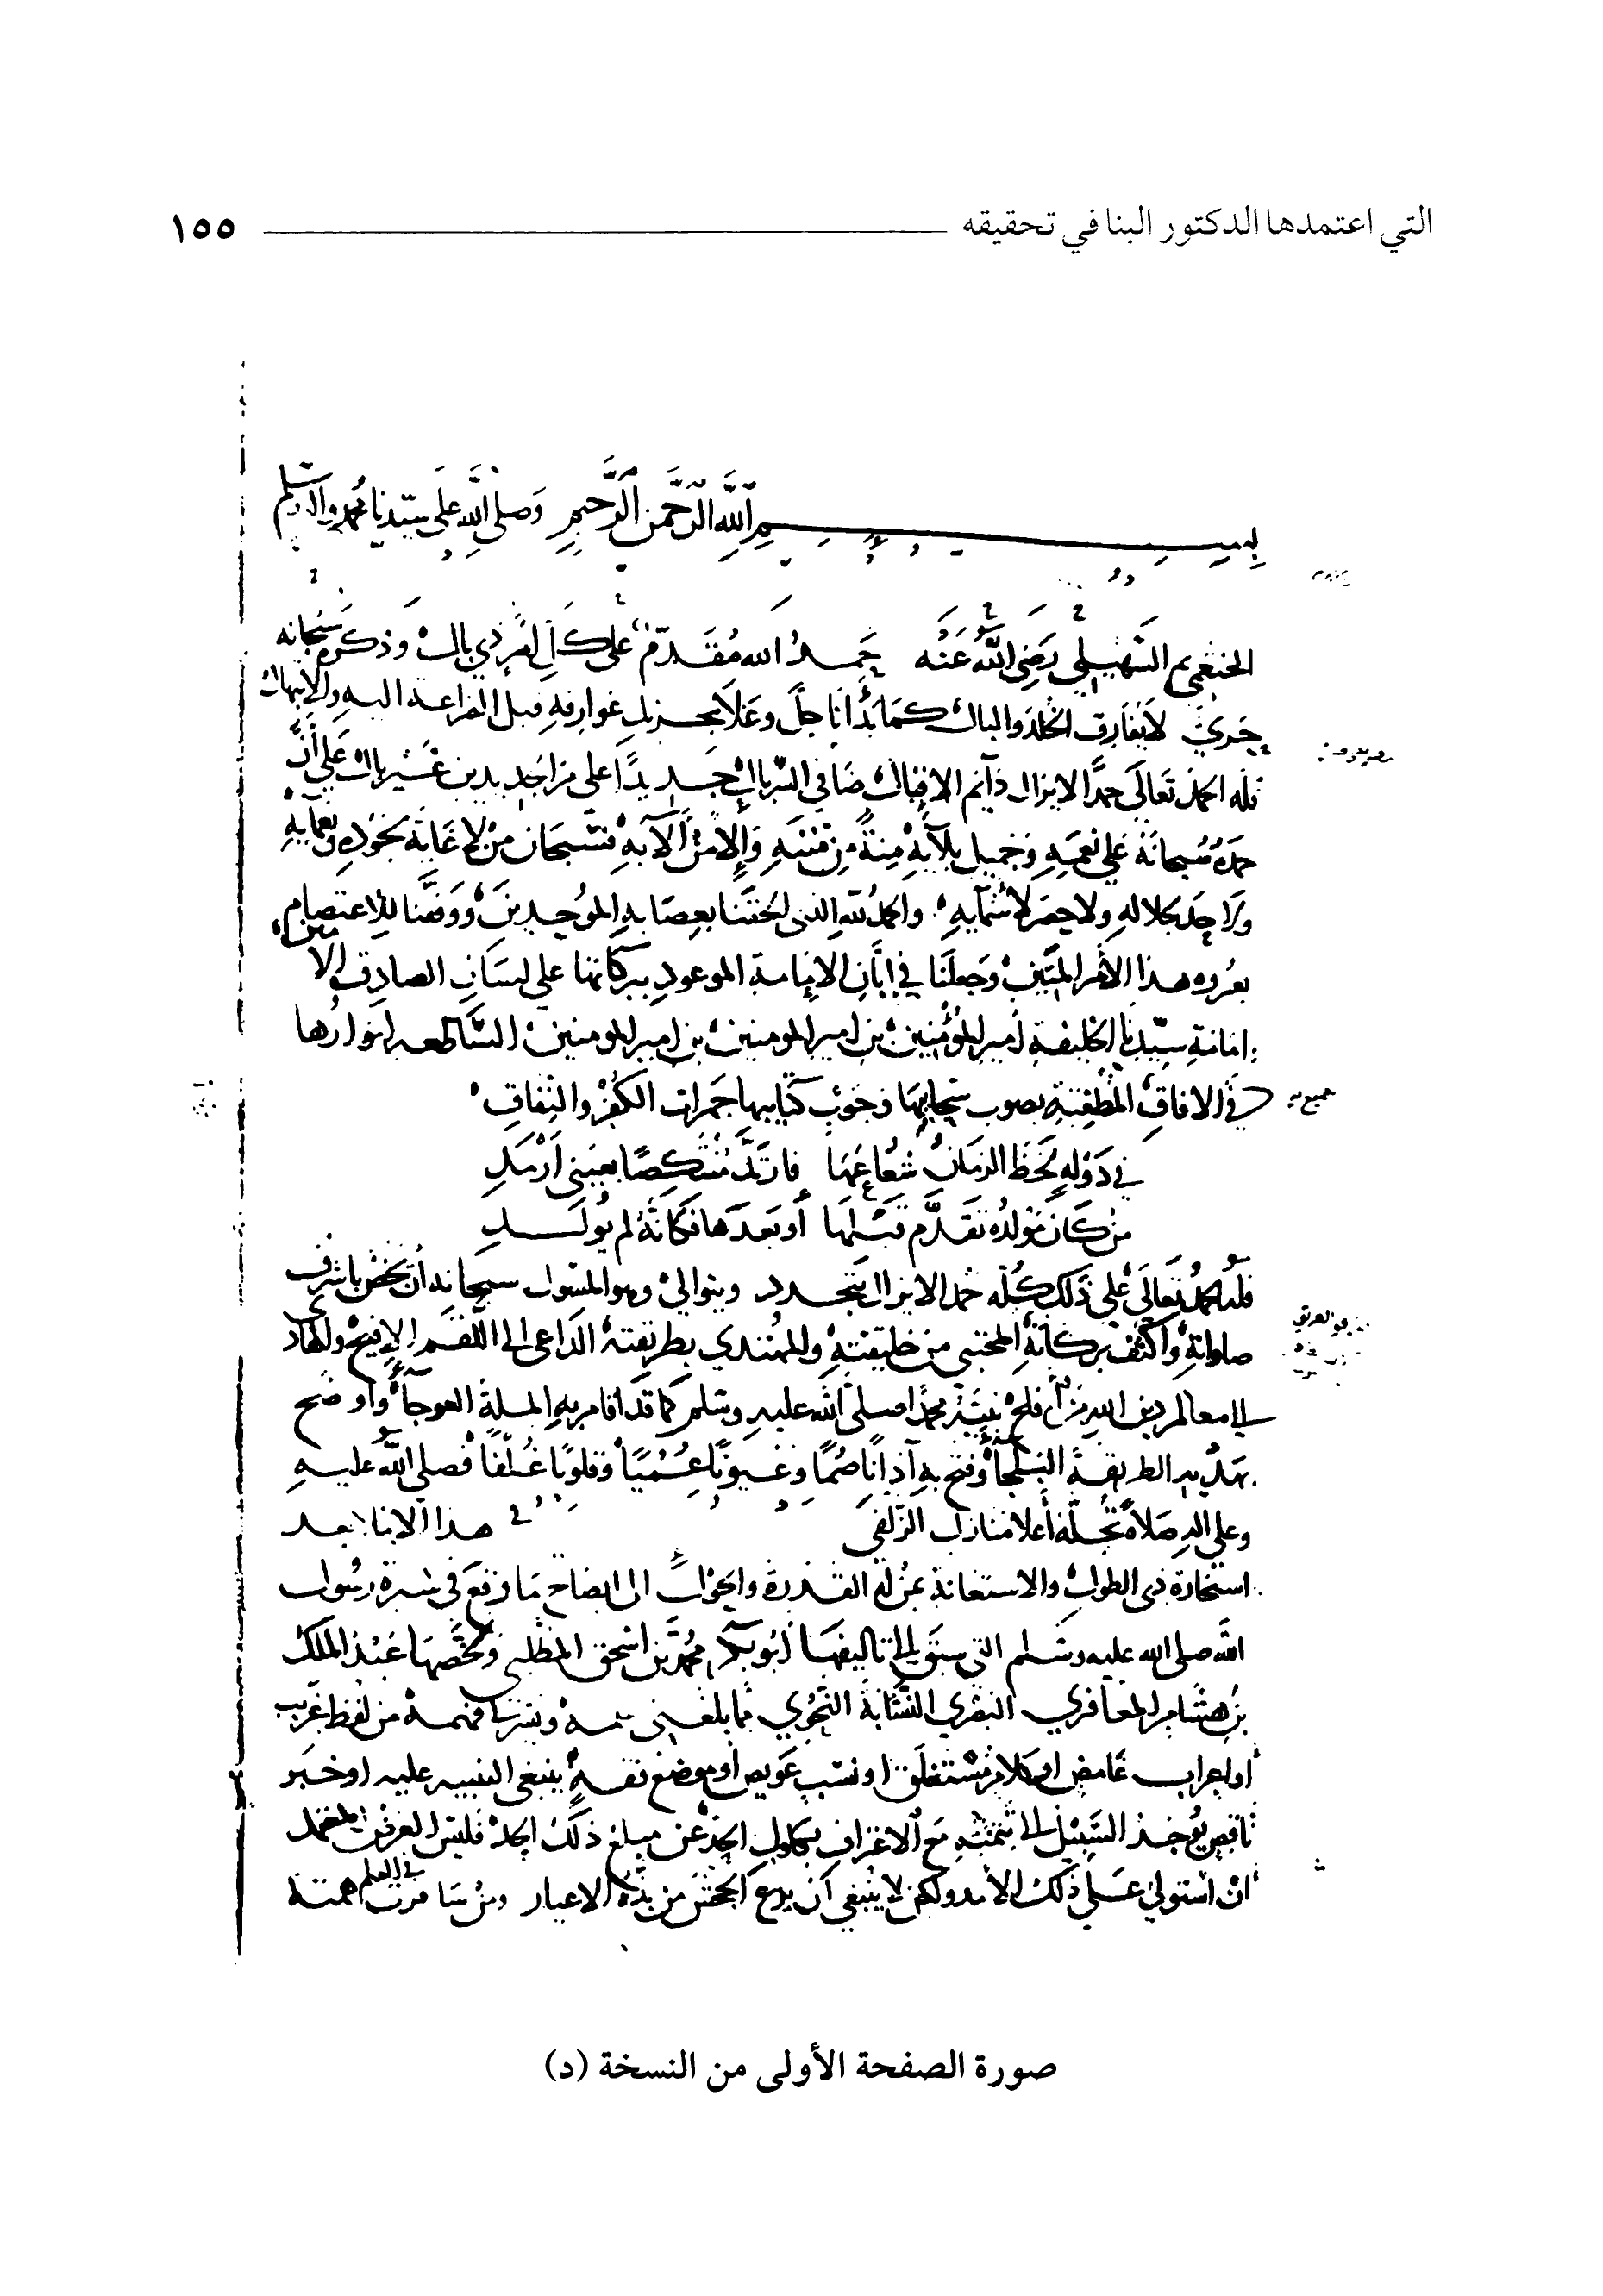 التي اعتمدها الدكتور البنا في تحقيقه ١٥٥
بسم الله الرحمن الرحيم وصلى الله على سيدنا محمد وآله وسلم
الخثعمي ثم السهيلي رضي الله عنه حمد الله مقدم على كل أمر ذي بال وذكره سبحانه
حري لا يفارق الخلد والبال كما بدأنا جل وعلا بجزيل عوارفه قبل الضراعة إليه والابتهال
فله الحمد تعالى حمدا لا يزال دائم الاقتبال ضافي السربال جديدا على مر الجديدين غير بال على أن
حمده سبحانه على نعمه وجميل بلائه منة من مننه وآلاء من آلائه فسبحان من لا غاية لجوده ونعمائه
ولا حد لجلاله ولا حصر لأسمائه والحمد لله الذي ألحقنا بعصابة الموحدين ووفقنا للاعتصام
بعروة هذا الأمر المتين وجعلنا في إبان الإمامة الموعود ببركاتها على لسان الصادق الأمين
إمامة سيدنا الخليفة أمير المؤمنين بن أمير المومنين بن أمير المومنين الساطعة أنوارها
في الآفاق المطفئة بصوب سحابها وجوب كتايبها جمرات الكفر والنفاق
في دولة لحظ الزمان شعاعها فارتد منتكصا بعيني أرمد
من كان مولده تقدم قبلها أو بعدها فكأنه لم يولد
فله الحمد تعالى على ذلك كله حمدا لا يزال يتجدد ويتوالى وهو المسئول سبحانه أن يخص بأشرف
صلواته وأكثف بركاته المجتبى من خليقته والمهتدي بطريقته الداعي إلى اللقم الأفيح والهاد
إلى معالم دين الله من أفلح نبيه محمدا صلى الله عليه وسلم كما قد أقام به الملة العوجاء وأوضح
بهديه الطريقة البلجاء وفتح به آذانا صما وعيونا عميا وقلوبا غلفا فصلى الله عليه
وعلى آله صلاة تحله أعلا منازل الزلفى هذا الانا بعد
استخارة ذي الطول والاستعانة بمن له القدرة والحول إلى إيضاح ما وقع في سيرة رسول
الله صلى الله عليه وسلم التي سبق إلى تأليفها أبو بكر محمد بن إسحق المطلبي ولخصها عبد الملك
بن هشام المعافري البصري النسابة النحوي مما بلغني علمه ويسر لي فهمه من لفظ غريب
أو إعراب غامض أو كلام مستغلق أو نسب عويص أو موضع فقه ينبغي التنبيه عليه أو خبر
ناقص يوجد السبيل إلى تتمته مع الاعتراف بكلول الحد عن مبلغ ذلك الحد فليس الغرض المعتمد
أن أستولي على ذلك الأمد ولكن لا ينبغي أن يدع الجحش من بذه الأعيار ومن سافرت في العلم همته
صورة الصفحة الأولى من النسخة (د)